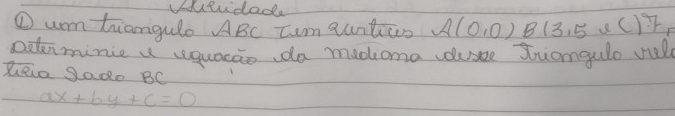 Atividade
① um triangulo ABC tem vertices A(0,0) B(3,5 e C)7,
Determinie a equacão da mediama desse Triangulo rela
lado BC
ax+by+c=0